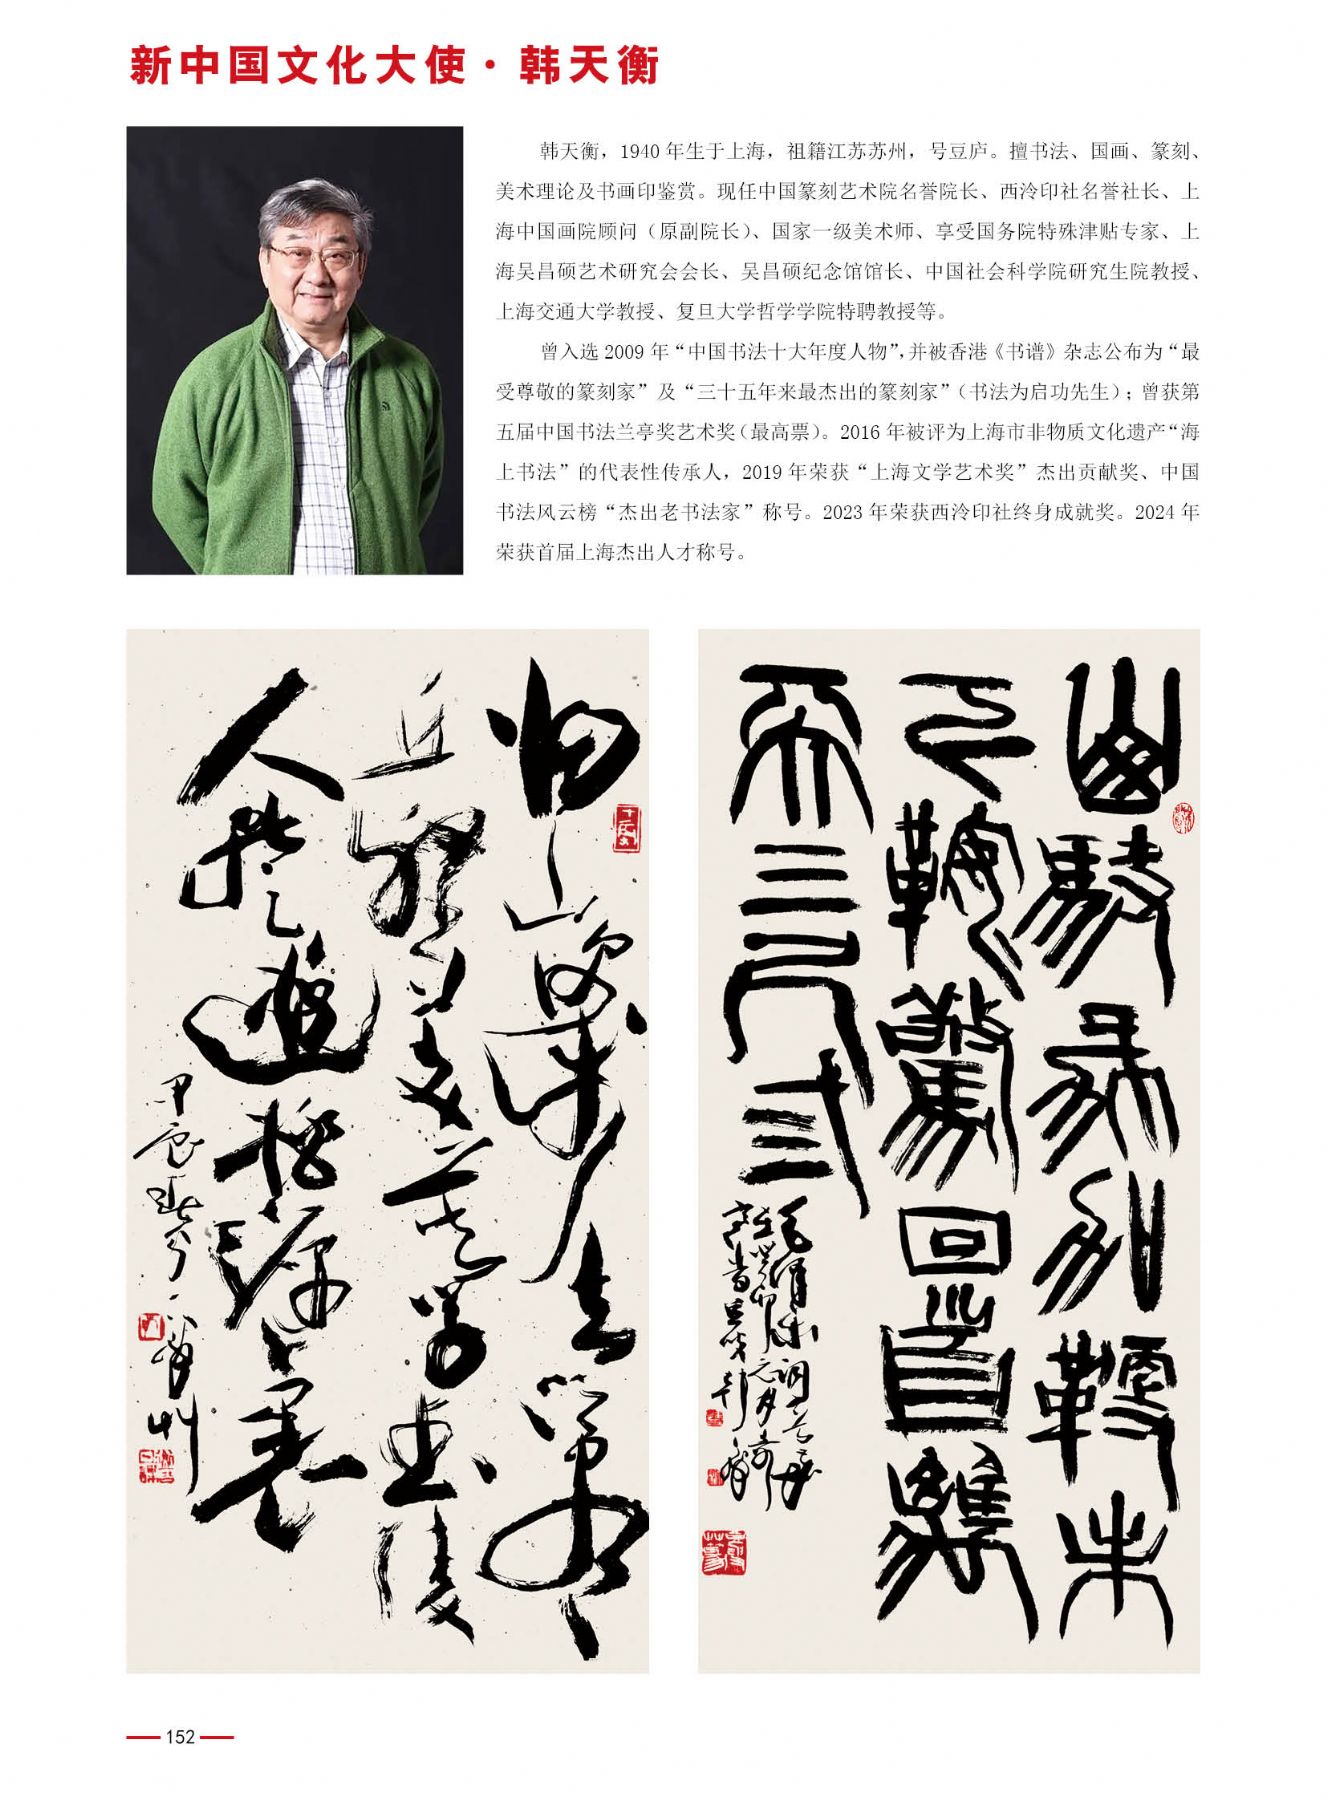 新中国文化大使·韩天衡
韩天衡，1940 年生于上海，祖籍江苏苏州，号豆庐。擅书法、国画、篆刻、
美术理论及书画印鉴赏。现任中国篆刻艺术院名誉院长、西泠印社名誉社长、上
海中国画院顾问（原副院长）、国家一级美术师、享受国务院特殊津贴专家、上
海吴昌硕艺术研究会会长、吴昌硕纪念馆馆长、中国社会科学院研究生院教授、
上海交通大学教授、复旦大学哲学学院特聘教授等。
曾入选 2009 年“中国书法十大年度人物”，并被香港《书谱》杂志公布为“最
受尊敬的篆刻家”及“三十五年来最杰出的篆刻家”（书法为启功先生）；曾获第
五届中国书法兰亭奖艺术奖（最高票）。2016 年被评为上海市非物质文化遗产“海
上书法”的代表性传承人，2019 年荣获“上海文学艺术奖”杰出贡献奖、中国
书法风云榜“杰出老书法家”称号。2023 年荣获西泠印社终身成就奖。2024 年
荣获首届上海杰出人才称号。
归山深浅去须尽
丘壑美莫学武陵
人暂游桃源里
甲辰春
山馬加鞭未
下鞍驚回首離
天三尺弎
152